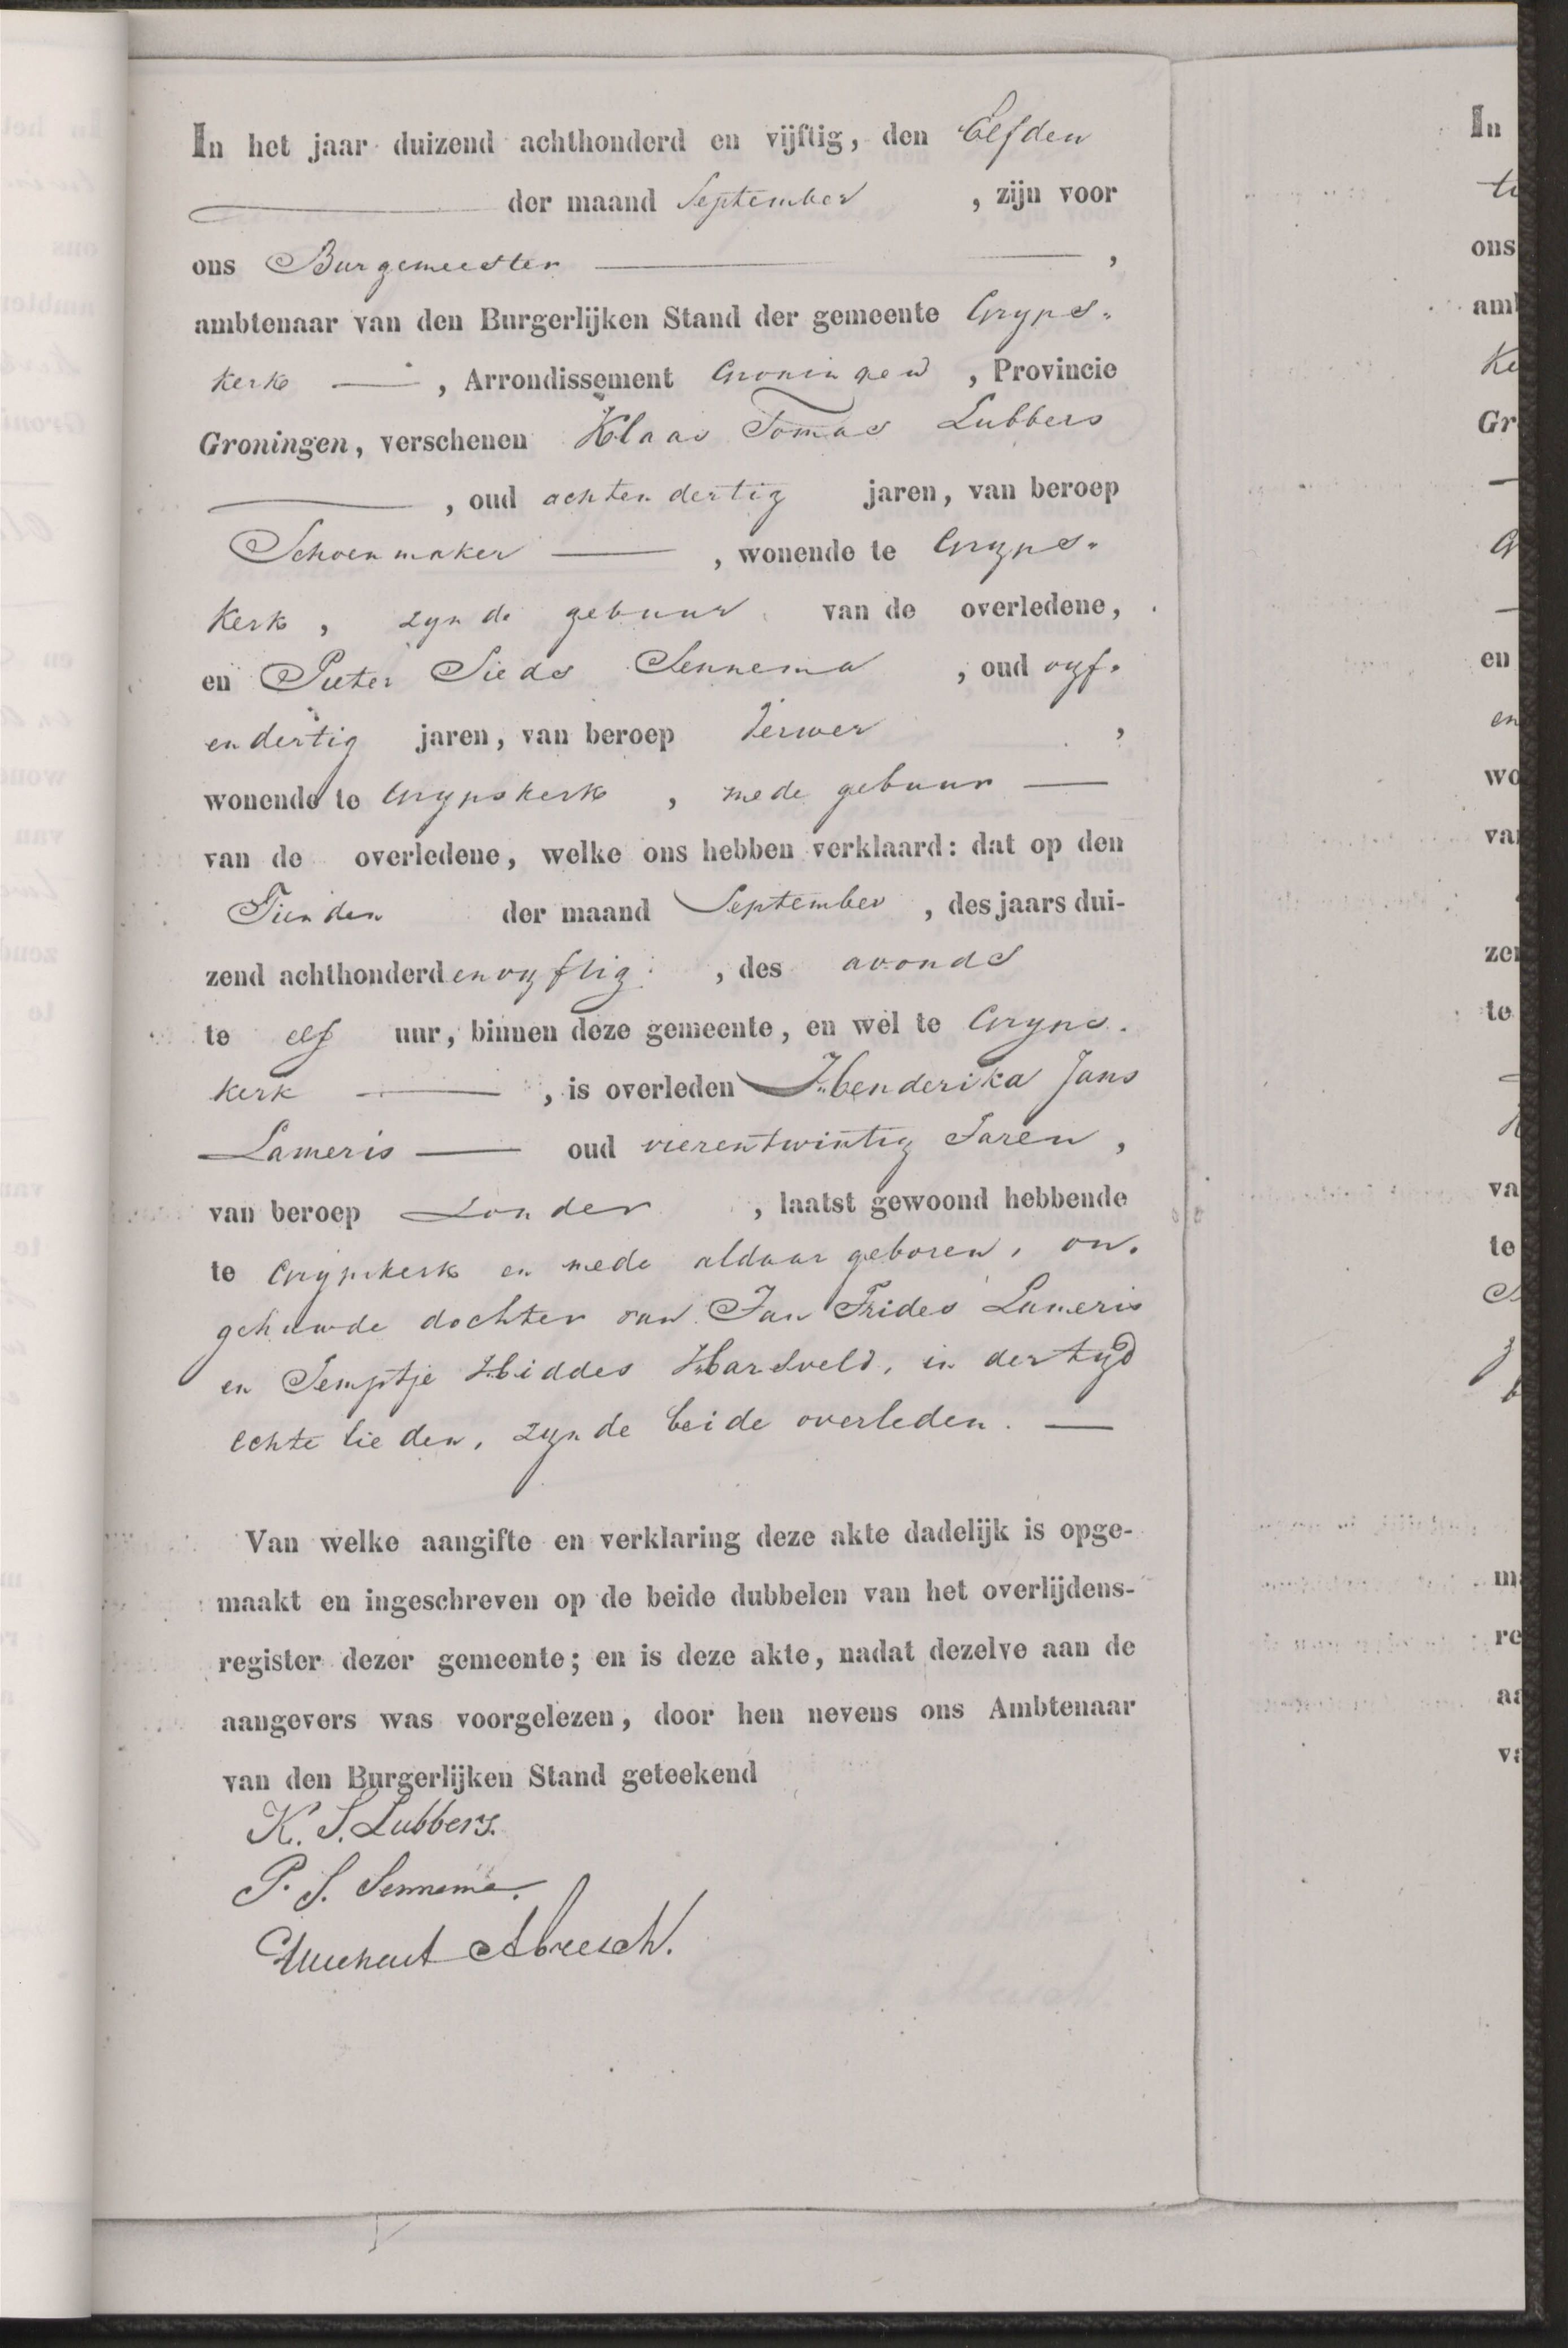 In het jaar duizend achthonderd en vijftig, den Elfden
der maand September, zijn voor
ons Burgemeester,
ambtenaar van den Burgerlijken Stand der gemeente Gryps-
kerk, Arrondissement Groningen, Provincie
Groningen, verschenen Klaas Tomas Lubbers
, oud achtendertig jaren, van beroep
Schoenmaker, wonende te Gryps-
kerk, zynde gebuur van de overledene,
en Pieter Sieds Sennema, oud vyf-
endertig jaren, van beroep Verwer,
wonende te Grypskerk, mede gebuur
van de overledene, welke ons hebben verklaard: dat op den
Tienden der maand September, des jaars dui-
zend achthonderd envyftig, des avonds
te elf uur, binnen deze gemeente, en wel te Gryps-
kerk, is overleden Henderika Jans
Lameris oud vierentwintig Jaren,
van beroep Zonder, laatst gewoond hebbende
te Grypskerk en mede aldaar geboren, on-
gehuwde dochter van Jan Frides Lameris
en Jemptje Hiddes Hardveld, in dertyd
echte lieden, zynde beide overleden.
Van welke aangifte en verklaring deze akte dadelijk is opge-
maakt en ingeschreven op de beide dubbelen van het overlijdens-
register dezer gemeente; en is deze akte, nadat dezelve aan de
aangevers was voorgelezen, door hen nevens ons Ambtenaar
van den Burgerlijken Stand geteekend
K. T. Lubbers.
P. S. Sennema.
Abresch.